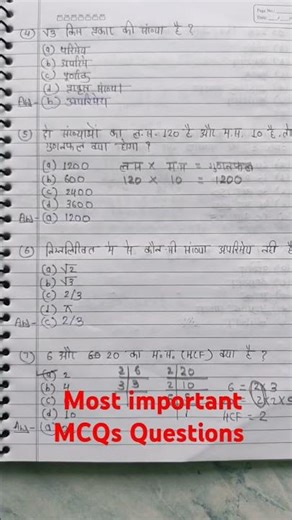 (4) √3 किस प्रकार की संख्या है ?
(a) परिमेय
(b) अपरिमेय
(c) पूर्णांक
(d) प्राकृत संख्या
Ans - (b) अपरिमेय
(5) दो संख्याओं का ल.स. 120 है और म.स. 10 है, तो
गुणनफल क्या होगा ?
(a) 1200 ल.स × म.स = गुणनफल
(b) 600 120 × 10 = 1200
(c) 2400
(d) 3600
Ans - (a) 1200
(6) निम्नलिखित में से कौन सी संख्या अपरिमेय नहीं है
(a) √2
(b) √3
(c) 2/3
(d) π
Ans - (c) 2/3
(7) 6 और 20 का म.स. (HCF) क्या है ?
(a) 2 2 6 2 20
(b) 4 3 3 2 10 6 = 2 × 3
(c)
(d) 10 HCF = 2
Ans - (a)
Most important
MCQs Questions